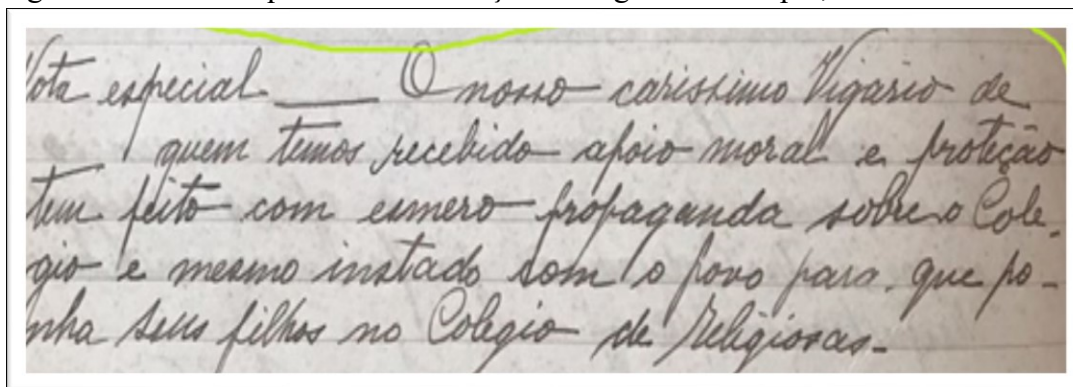 Nota especial ___ O nosso carissimo Vigario de
quem temos recebido apoio moral e proteção
tem feito com esmero propaganda sobre o Cole-
gio e mesmo instado com o povo para que po-
nha seus filhos no Colegio de Religiosas-